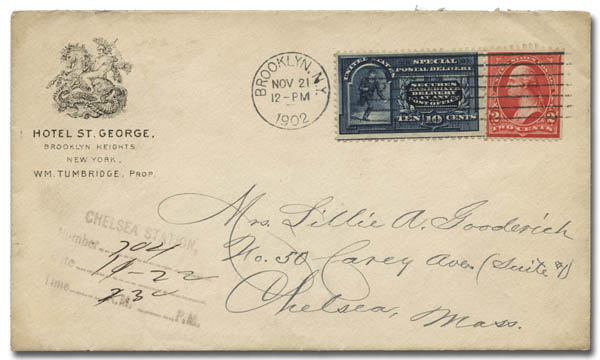 HOTEL ST. GEORGE,
BROOKLYN HEIGHTS,
NEW YORK,
WM. TUMBRIDGE, PROP.
BROOKLYN, N.Y.
NOV 21
12-PM
1902
UNITED STATES
SPECIAL
POSTAL DELIVERY
SECURES
IMMEDIATE
DELIVERY
AT ANY
POST OFFICE
TEN 10 CENTS
2 2
TWO CENTS
Mrs. Lillie A. Gooderich
No. 50 Carey Ave. (Suite
Chelsea, Mass.
CHELSEA STATION,
Number
Date 11-22
Time A.M. P.M.